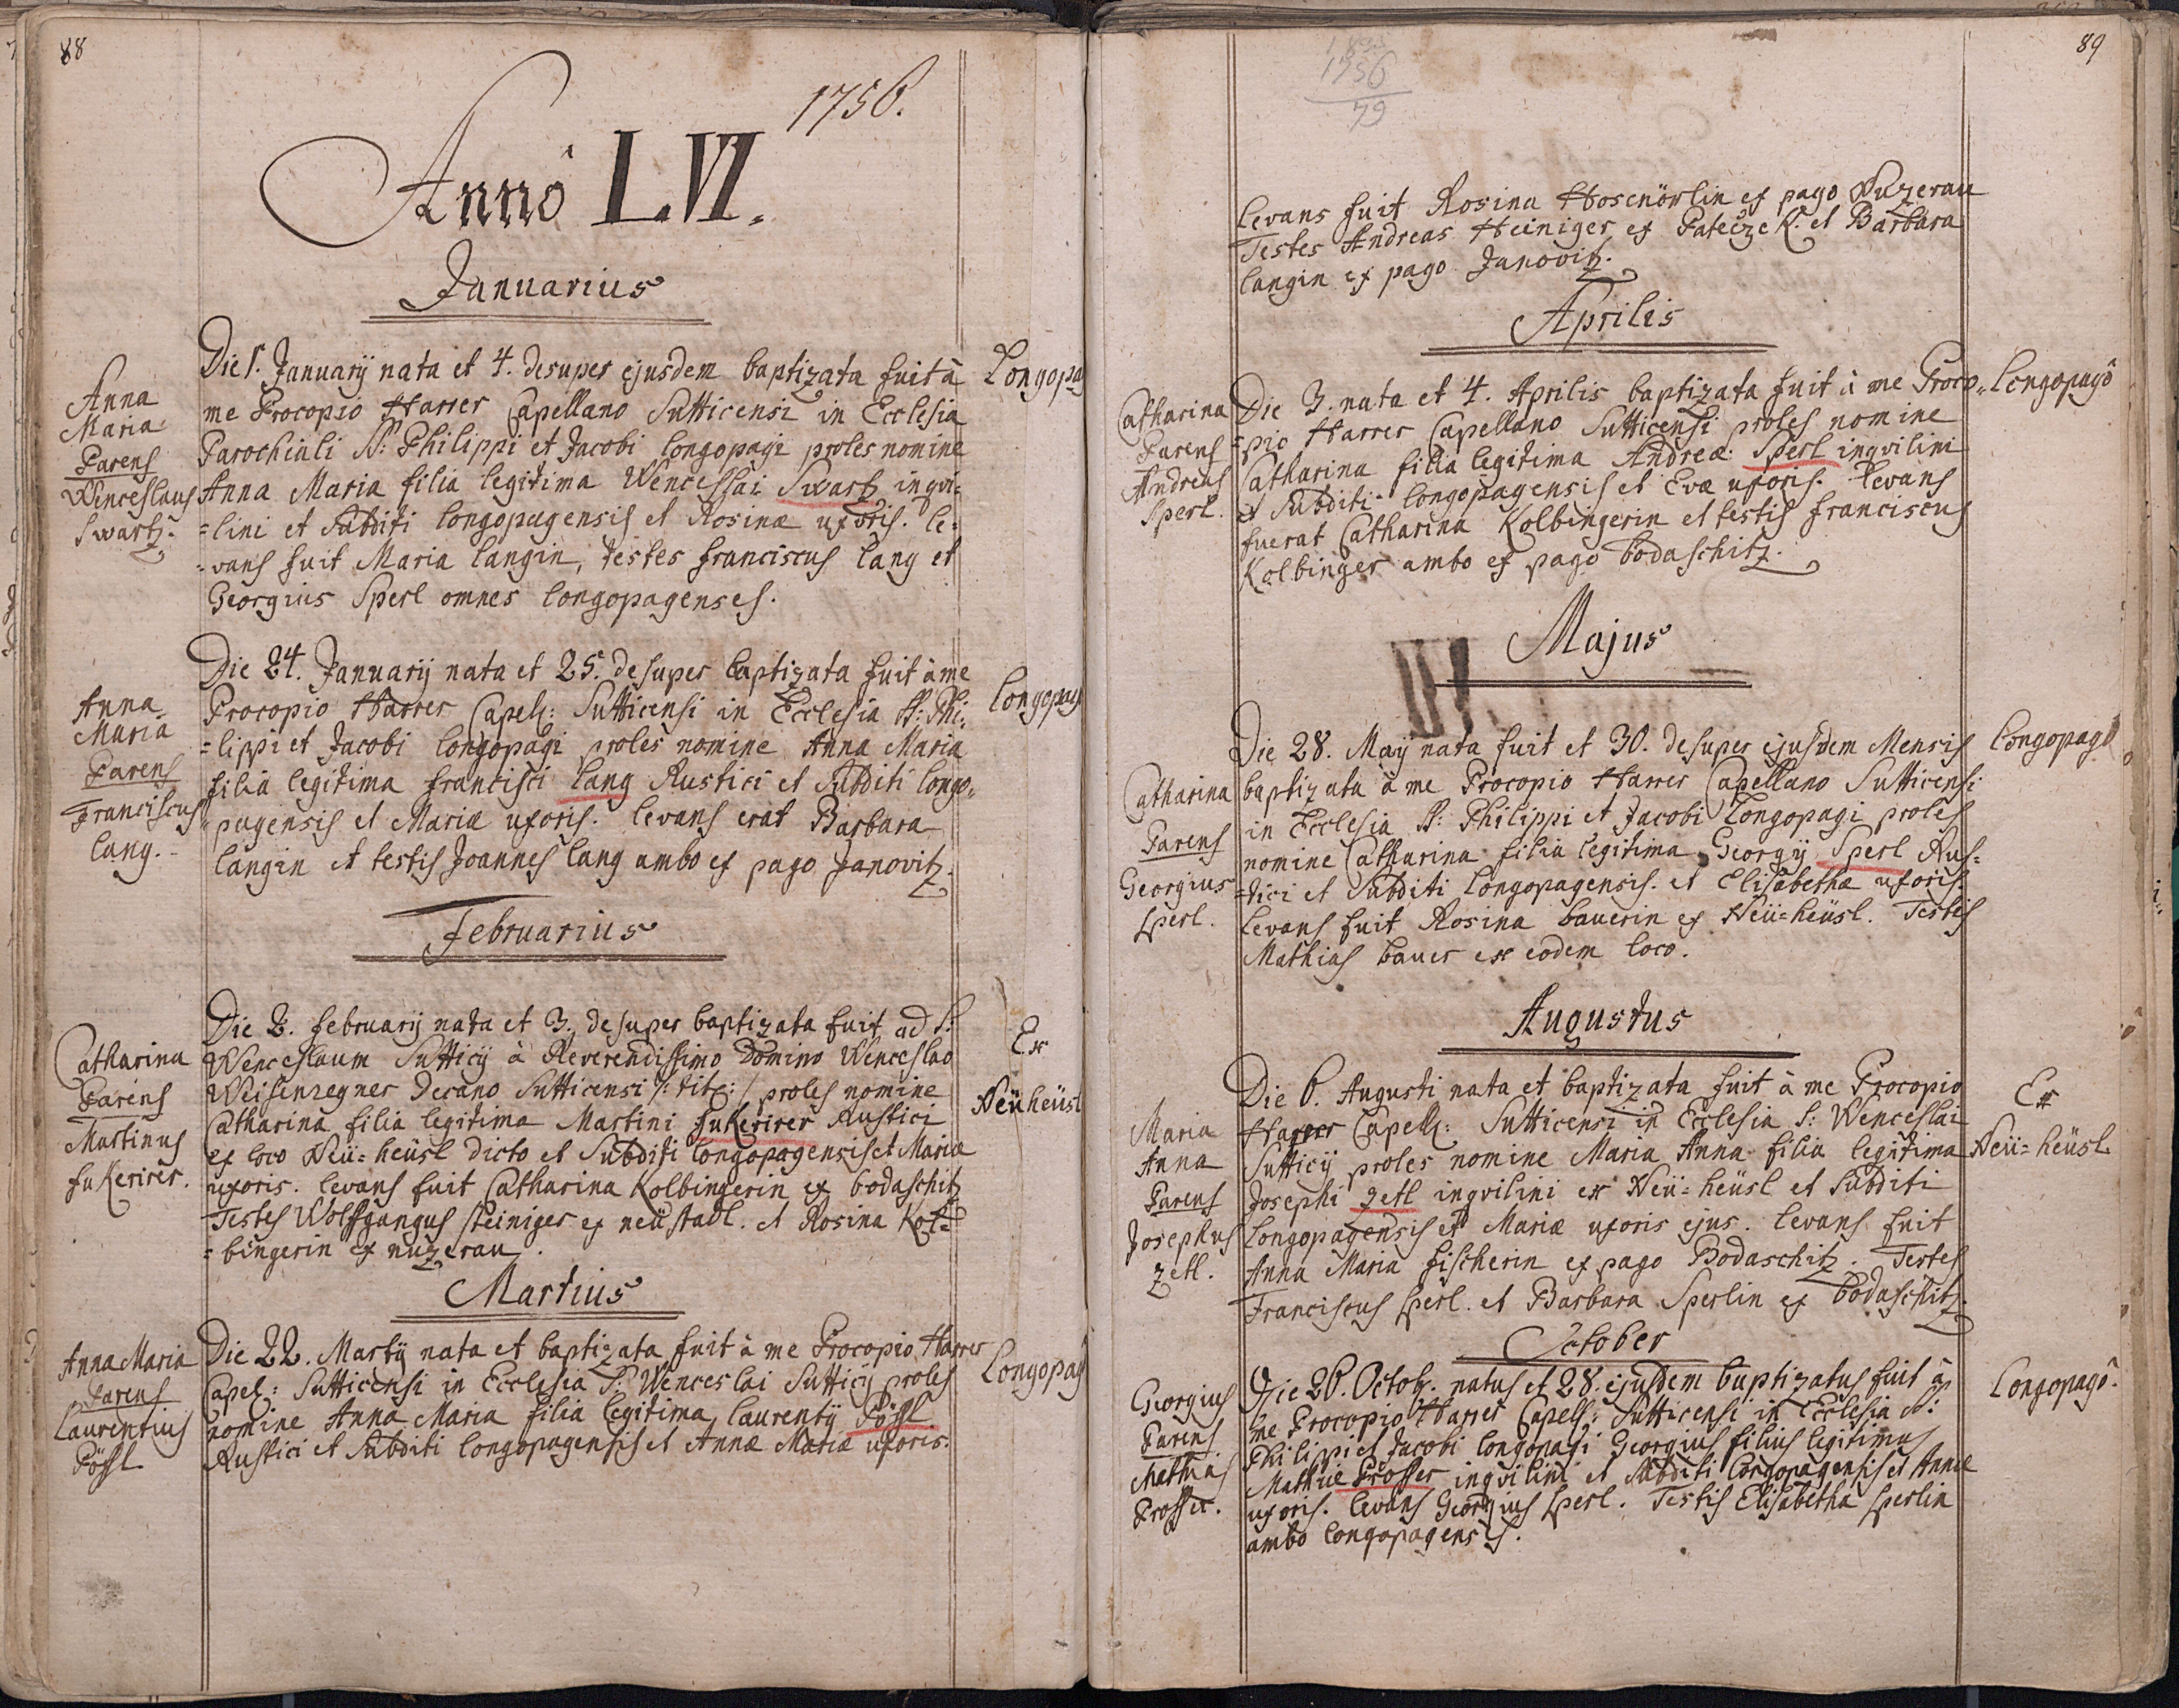 88
1756.
Anno LVI.
Januarius
Anna
Maria
Parens
Wenceslaus
Swartz.
Die 1. Januarij nata et 4. desuper ejusdem baptizata fuit à
me Procopio Harrer Capellano Sutticensi in Ecclesia
Parochiali SS: Philippi et Jacobi longopagi proles nomine
Anna Maria filia legitima Wenceslai Swartz inqvi-
=lini et Subditi longopagensis et Rosinæ uxoris. le-
=vans fuit Maria langin, testes franciscus lang et
Georgius Sperl omnes longopagenses.
Longopa
Anna
Maria
Parens
Franciscus
lang.
Die 24. Januarij nata et 25. desuper baptizata fuit à me
Procopio Harrer Capell: Sutticensi in Ecclesia SS: Phi-
=lippi et Jacobi longopagi proles nomine Anna Maria
filia legitima francisci lang Rustici et Subditi longo-
pagensis et Mariæ uxoris. levans erat Barbara
langin et testis Joannes lang ambo ex pago Janovitz.
longopag
Februarius
Catharina
Parens
Martinus
fukerirer.
Die 2. februarij nata et 3. desuper baptizata fuit ad S.
Wenceslaum Sutticij à Reverendissimo Domino Wenceslao
Weisenregner Decano Sutticensi /: tit: / proles nomine
Catharina filia legitima Martini fukerirer Rustici
ex loco Neü=heüsl dicto et Subditi longopagensis et Mariæ
uxoris. levans fuit Catharina Kolbingerin ex bodaschitz
Testes Wolffgangus steiniger ex neustadl. et Rosina Kol-
=bingerin ex nuzerau.
Ex
Neüheüsl
Martius
Anna Maria
Parens
Laurentius
Pössl
Die 22. Martij nata et baptizata fuit à me Procopio Harrer
Capel: Sutticensi in Ecclesia S. Wenceslai Sutticij proles
nomine Anna Maria filia legitima laurentij Pössl
Rustici et Subditi longopagensis et Annæ Mariæ uxoris.
Longopag
89
1756
79
levans fuit Rosina Hosenörlin ex pago Nuzerau
Testes Andreas Heiniger ex Pateczek. et Barbara
langin ex pago Janovitz.
Aprilis
Catharina
Parens
Andreas
Sperl.
Die 3. nata et 4. Aprilis baptizata fuit à me Proco-
=pio Harrer Capellano Sutticensi proles nomine
Catharina filia legitima Andreæ Sperl inqvilini
et Subditi longopagensis et Evæ uxoris. levans
fuerat Catharina Kolbingerin et testis franciscus
Kolbinger ambo ex pago bodaschitz.
Longopagô
Majus
Catharina
Parens
Georgius
sperl.
Die 28. Maij nata fuit et 30. desuper ejusdem Mensis
baptizata à me Procopio Harrer Capellano Sutticensi
in Ecclesia SS: Philippi et Jacobi Longopagi proles
nomine Catharina filia legitima Georgij Sperl Rus-
=tici et Subditi longopagensis. et Elisabethæ uxoris.
levans fuit Rosina bauerin ex Neü=heüsl. Testis
Mathias bauer ex eodem loco.
Longopagô
Augustus
Maria
Anna
Parens
Josephus
zetl.
Die 6. Augusti nata et baptizata fuit à me Procopio
Harrer Capell: Sutticensi in Ecclesia S: Wenceslai
Sutticij proles nomine Maria Anna filia legitima
Josephi zetl inqvilini ex Neü=heüsl et Subditi
longopagensis et Mariæ uxoris ejus. levans fuit
Anna Maria fischerin ex pago Bodaschitz. Testes
Franciscus sperl. et Barbara Sperlin ex bodaschitz.
Ex
Neü=heüsl.
October
Georgius
Parens
Mathias
Prosser.
Die 26. Octob. natus et 28. ejusdem baptizatus fuit à
me Procopio Harrer Capell: Sutticensi in Ecclesia SS:
Philippi et Jacobi longopagi Georgius filius legitimus
Mathiæ Prosser inqvilini et Subditi longopagensis et Annæ
uxoris. levans Georgius sperl. Testis Elisabetha sperlin
ambo longopagenses.
Longopagô.